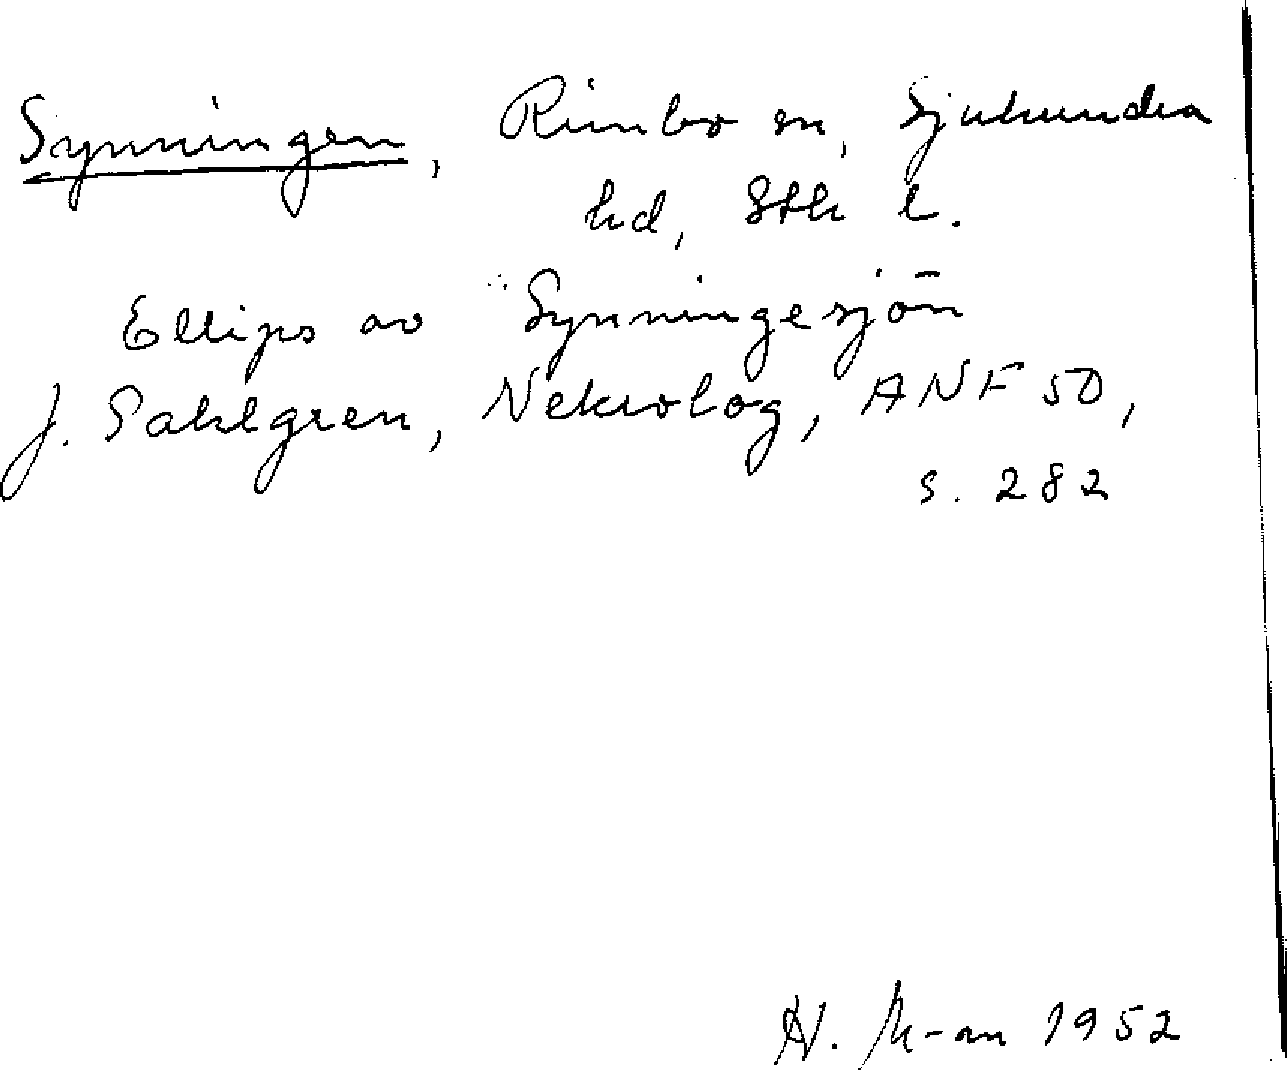 Synningen, Rimbo sn, Sjuhundra
hd, Sth l.
Ellips av Synningesjön
J. Sahlgren, Nekrolog, ANF 50,
s. 282
1952